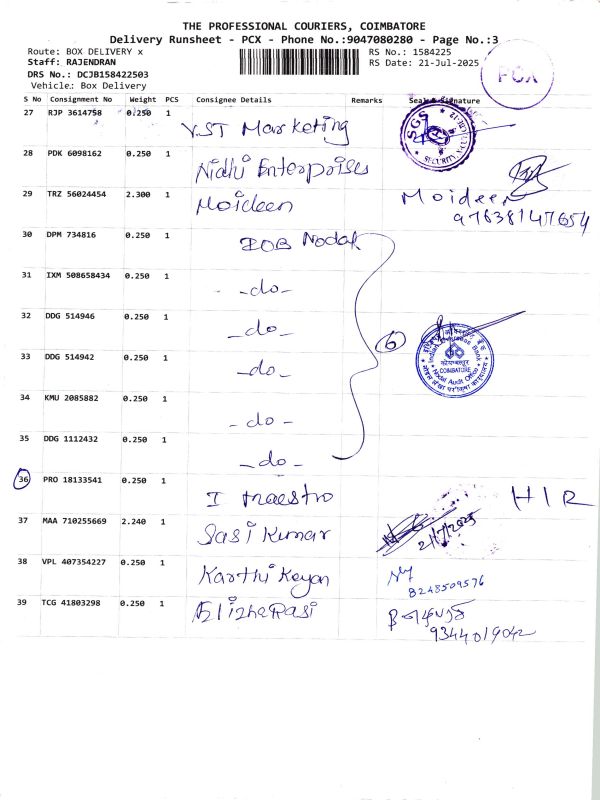 THE PROFESSIONAL COURIERS, COIMBATORE
Delivery Runsheet - PCX - Phone No.:9047080280 - Page No.:3
Route: BOX DELIVERY x
RS No.: 1584225
Staff: RAJENDRAN
RS Date: 21-Jul-2025
DRS No.: DCJB158422503
Vehicle: Box Delivery
PCX
S No Consignment No Weight PCS Consignee Details Remarks Seal & Signature
27 RJP 3614758 0.250 1 V.ST Marketing
SGS
28 PDK 6098162 0.250 1 Nidhi Enterprises
29 TRZ 56024454 2.300 1 Moideen Moideen
97638147654
30 DPM 734816 0.250 1 IOB Nodal
31 IXM 508658434 0.250 1 -do-
32 DDG 514946 0.250 1 -do-
6
COIMBATORE
Nodal Audit Office
33 DDG 514942 0.250 1 -do-
34 KMU 2085882 0.250 1 -do-
35 DDG 1112432 0.250 1 -do-
36 PRO 18133541 0.250 1 I maestro HIR
37 MAA 710255669 2.240 1 Sasi Kumar
21/7/2025
38 VPL 407354227 0.250 1 Karthi Keyan
8248509576
39 TCG 41803298 0.250 1 Elizhe Rasi
9344019042